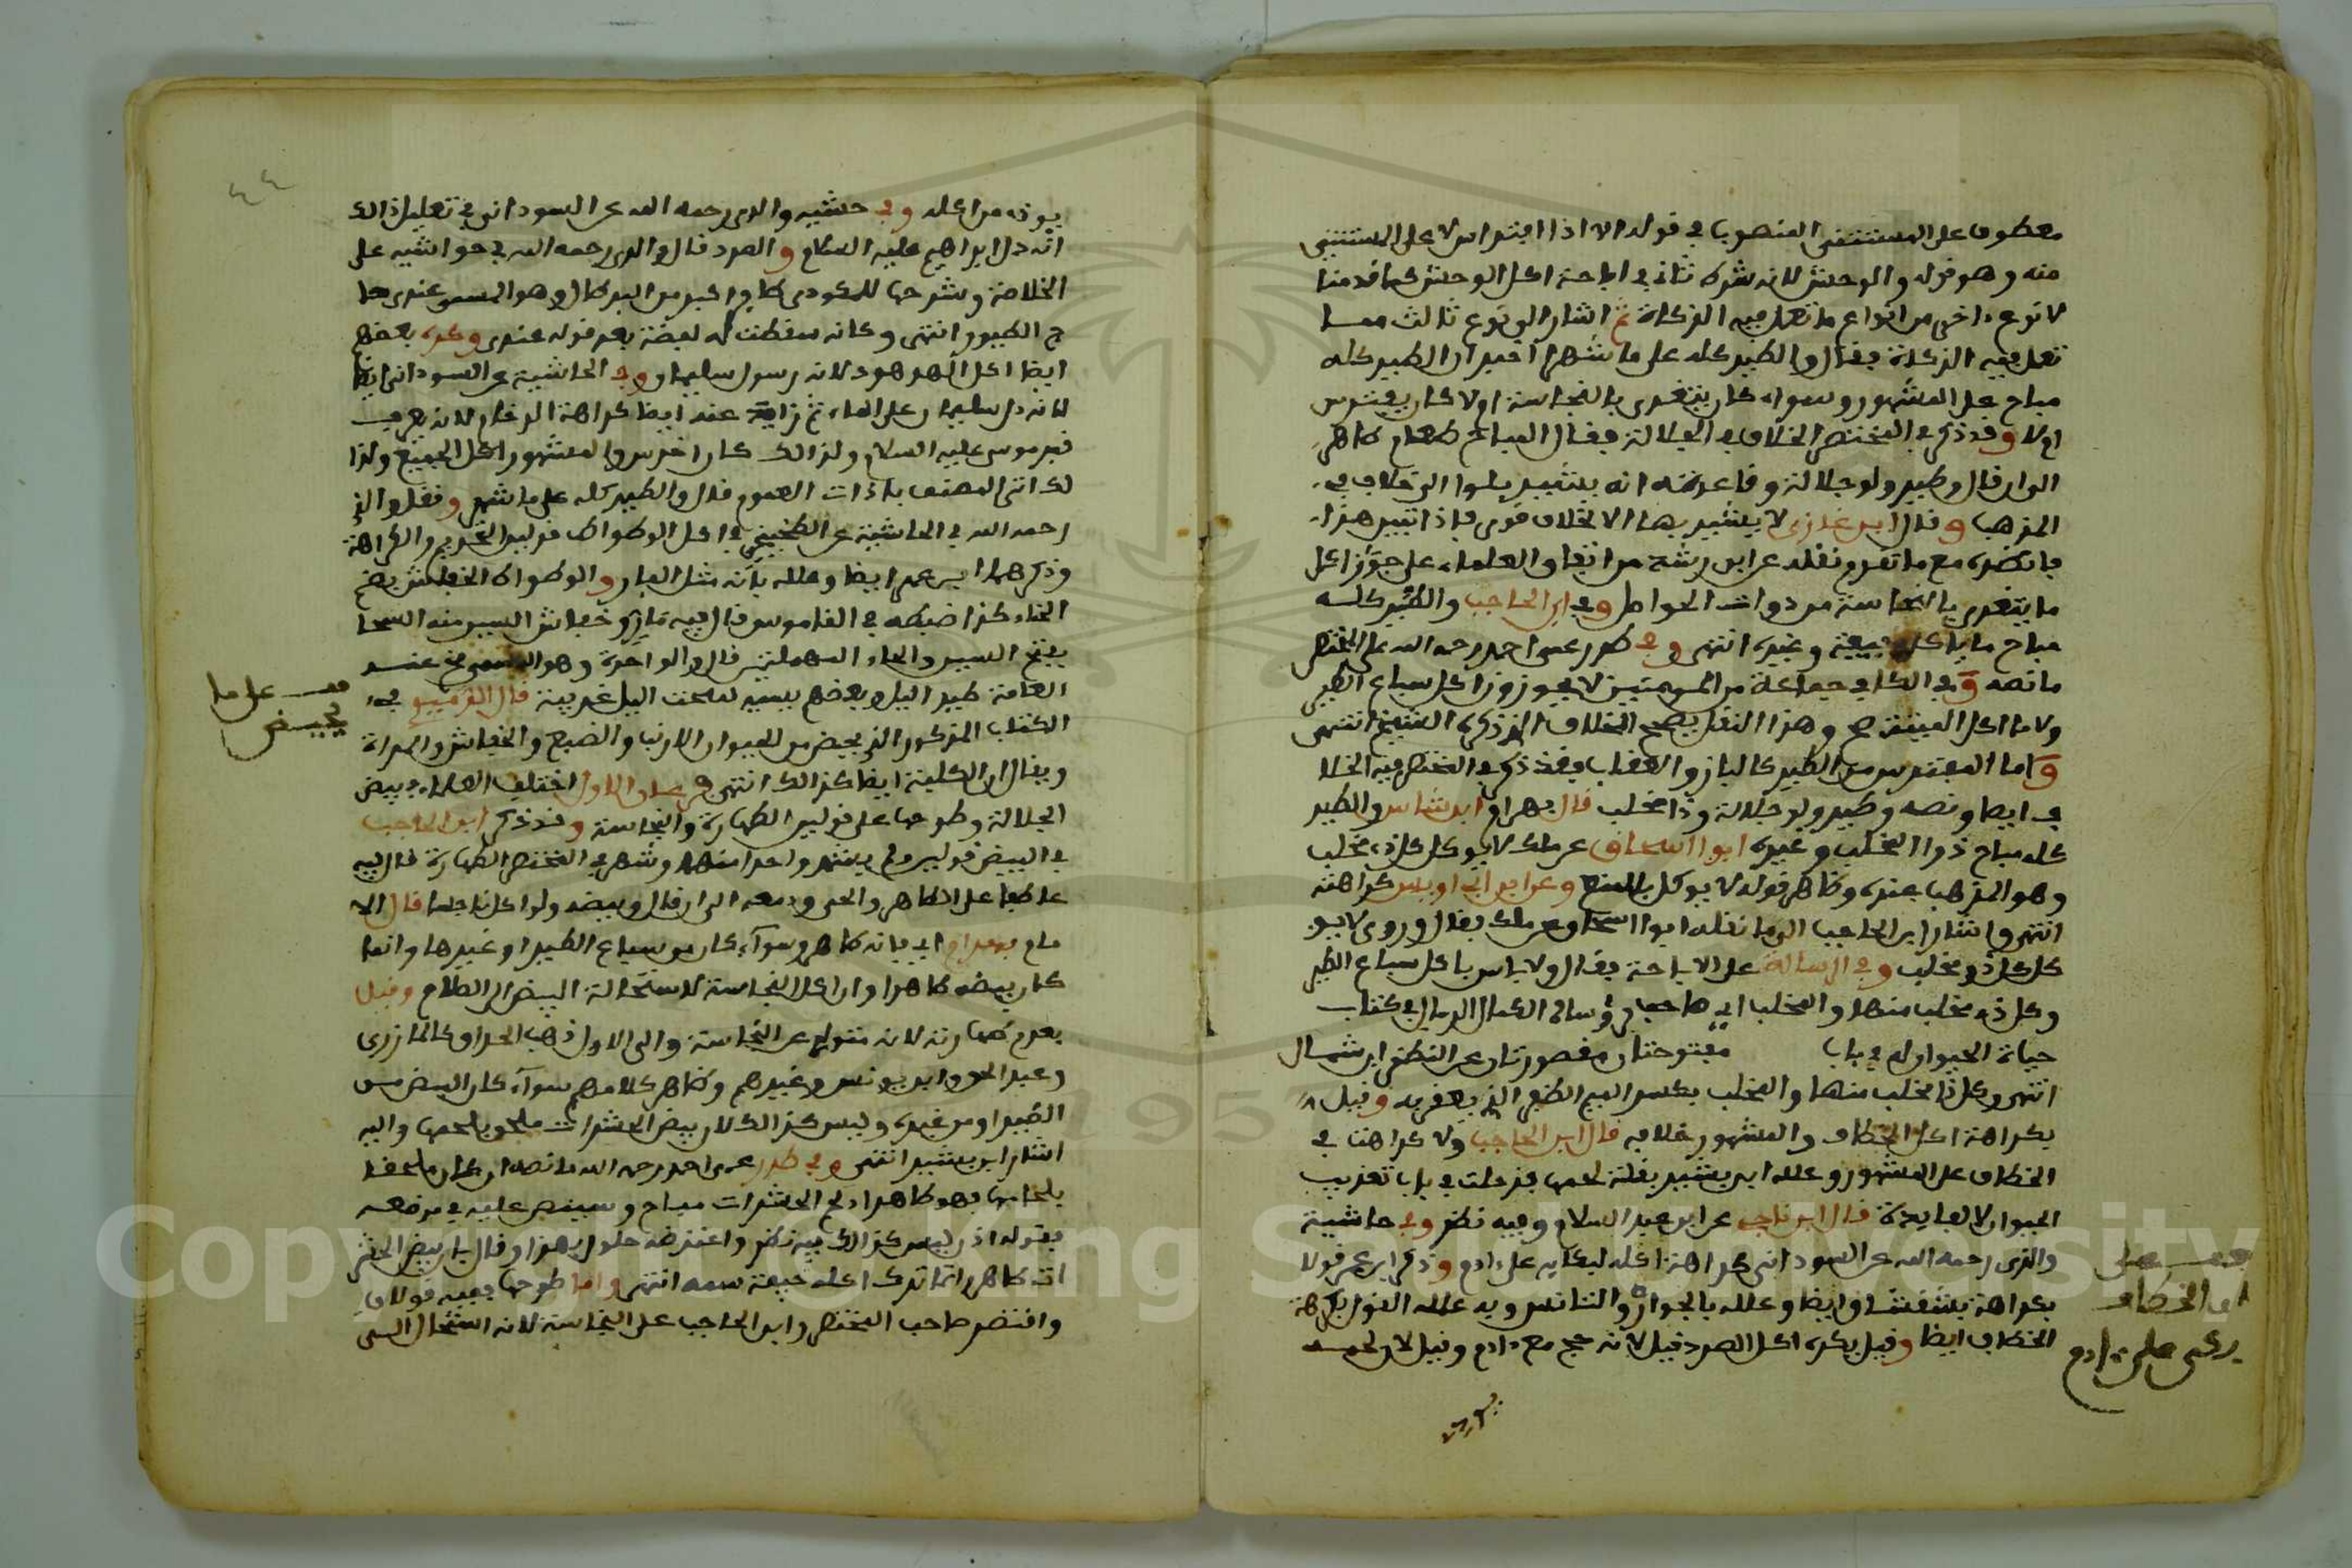 معطوف على المستثنى المنصوب في قوله الا اذا افترس لا على المستثنى
منه وهو قوله والوحش لانه شرك ثان في اباحة اكل الوحش كما قدمنا
لا نوع اخر من انواع ما تعمل فيه الذكاة ثم اشار الى نوع ثالث مما
تعمل فيه الذكاة فقال والطير كله على ما شهر اخبر ان الطير كله
مباح على المشهور وسواء كان يتغذى بالنجاسة او لا كان يفترس
او لا وقد ذكر في المختصر الخلاف في الجلالة فقال المباح طعام طاهر
الى ان قال وطير ولو جلالة وقاعدته انه يشير بلو الى خلاف في
المذهب وقال ابن غازي لا يشير بها الا لخلاف قوي فاذا تبين هذا
فانظره مع ما تقدم ونقله عن ابن رشد من اتفاق العلماء على جواز اكل
ما يتغذى بالنجاسة من ذوات الحواصل وفي ابن الحاجب والطير كله
مباح ما ياكل الجيفة وغيره انتهى وفي طرر عمي احمد رحمه الله على المختصر
ما نصه وفي الكافي جماعة من المدنيين لا يجوزون اكل سباع الطير
ولا ما اكل الميتة صح وهذا النقل يصحح الخلاف الذي ذكره الشيخ انتهى
واما المفترس من الطير كالباز والعقاب فقد ذكر في المختصر فيه الخلا
ف ايضا ونصه وطير ولو جلالة وذا مخلب قال بهرام ابن شاس والطير
كله مباح ذو المخلب وغيره ابو اسحاق عن ملك لا يوكل كل ذي مخلب
وهو المذهب عنده وظاهر قوله لا يوكل المنع وعن ابن ابي اويس كراهته
انتهى واشار ابن الحاجب الى ما نقله ابو اسحاق عن ملك فقال وروي لا يو
كل كل ذو مخلب وفي الرسالة على الاباحة فقال ولا باس باكل سباع الطير
وكل ذي مخلب منها والمخلب اي صاحب قال الكمال الدميري في كتاب
حياة الحيوان له في باب مفتوحتان مقصورتان عن النطق ابن شمال
انتهى وكل ذا مخلب منها والمخلب بكسر الميم الظفر الذي يعقر به وقيل
بكراهة اكل الخطاف والمشهور خلافه قال ابن الحاجب ولا كراهة في
الخطاف على المشهور وعلله ابن بشير بقلة لحمها فدخلت في باب تعذيب
الحيوان لا لفايدة قال ابن ناجي عن ابن عبد السلام وفيه نظر وفي حاشية
والدي رحمه الله عن السوداني كراهة اكله لبكايه على ادم وذكر ابن عمر قولا
بكراهة ايضا وعلله بالجوار والتانس وبه علله القول بكراهة
الخطاف ايضا وقيل يكره اكل الصرد قيل لانه حج مع ادم وقيل لان لحمه
على
ان الخطاف
بكى على ادم
٤٤
وفي حاشية والدي رحمه الله عن السوداني في تعليل ذالك
انه دل ابراهيم عليه السلام والصرد قال والدي رحمه الله في حواشيه على
الخلاصة وشرحها للمكودي طاير اكبر من وهو المسمى عندي
الطيور انتهى وكانه سقطت له لفظة بعد قوله عندي وكره بعضهم
ايضا اكل الهدهد لانه رسول سليمان وفي الحاشية عن السوداني ايضا
لانه دل سليمان على الماء ثم زاد عنه ايضا كراهة لانه يعرف
قبر موسى عليه السلام ولذالك كان اخرس والمشهور اكل الجميع ولذا
لك اتى المصنف باداة العموم فقال والطير كله على ما شهر ونقل والدي
رحمه الله في الحاشية عن الطخيخي في اكل الوطواط قولين التحريم والكراهة
وذكرهما ابن عمر ايضا وعلله بانه مثل الفار والوطواط الخفاش بضم
الخاء كذا ضبطه في القاموس قال فيه خفاش السبر منه السحا
بفتح السين والحاء المهملتين قال والواحدة وهو المسمى عند
العامة طير اليل وبعضهم يسميه اليل غريبة قال الدميري في
الكتاب المذكور الذي يحيض من الحيوان الارنب والضبع والخفاش والمراة
ويقال ان الكلبة ايضا كذالك انتهى فرعان الاول اختلف العلماء في بيض
الجلالة وطوحها على قولين الطهارة والنجاسة وقد ذكر ابن الحاجب
في البيض قولين ولم يشهر واحدا منهما وشهر في المختصر الطهارة قال فيه
عاطفا على الطاهر والحي ودمعه الى ان قال وبيضه ولو اكل نجسا قال الا
مام بهرام اي فانه طاهر وسواء كان من سباع الطير او غيرها وانما
كان بيضه طاهرا وان اكل النجاسة لاستحالة البيض الى الصلاح وقيل
بعدم طهارته لانه متولد عن النجاسة والى الاول ذهب الحذاق كالمازري
وعبد الحق وابن يونس وغيرهم وظاهر كلامهم سواء كان البيض من
الطير او من غيره وليس كذالك لان بيض الحشرات ملحق بلحمها واليه
اشار ابن بشير انتهى وفي طرر عمي احمد رحمه الله ما نصه ان كان ملحقا
بلحمها فهو طاهر اذ لحم الحشرات مباح وسينص عليه في موضعه
فقوله اذن ليس كذالك فيه نظر واعترضه حلولو بهذا وقال بان بيض الحشر
ات طاهر وانما ترك اكله خيفة سمه انتهى واما طوحها ففيه قولان
واقتصر صاحب المختصر وابن الحاجب على النجاسة لانه استحال الى
على ما
يحيض
Copyright © King Saud University
1957